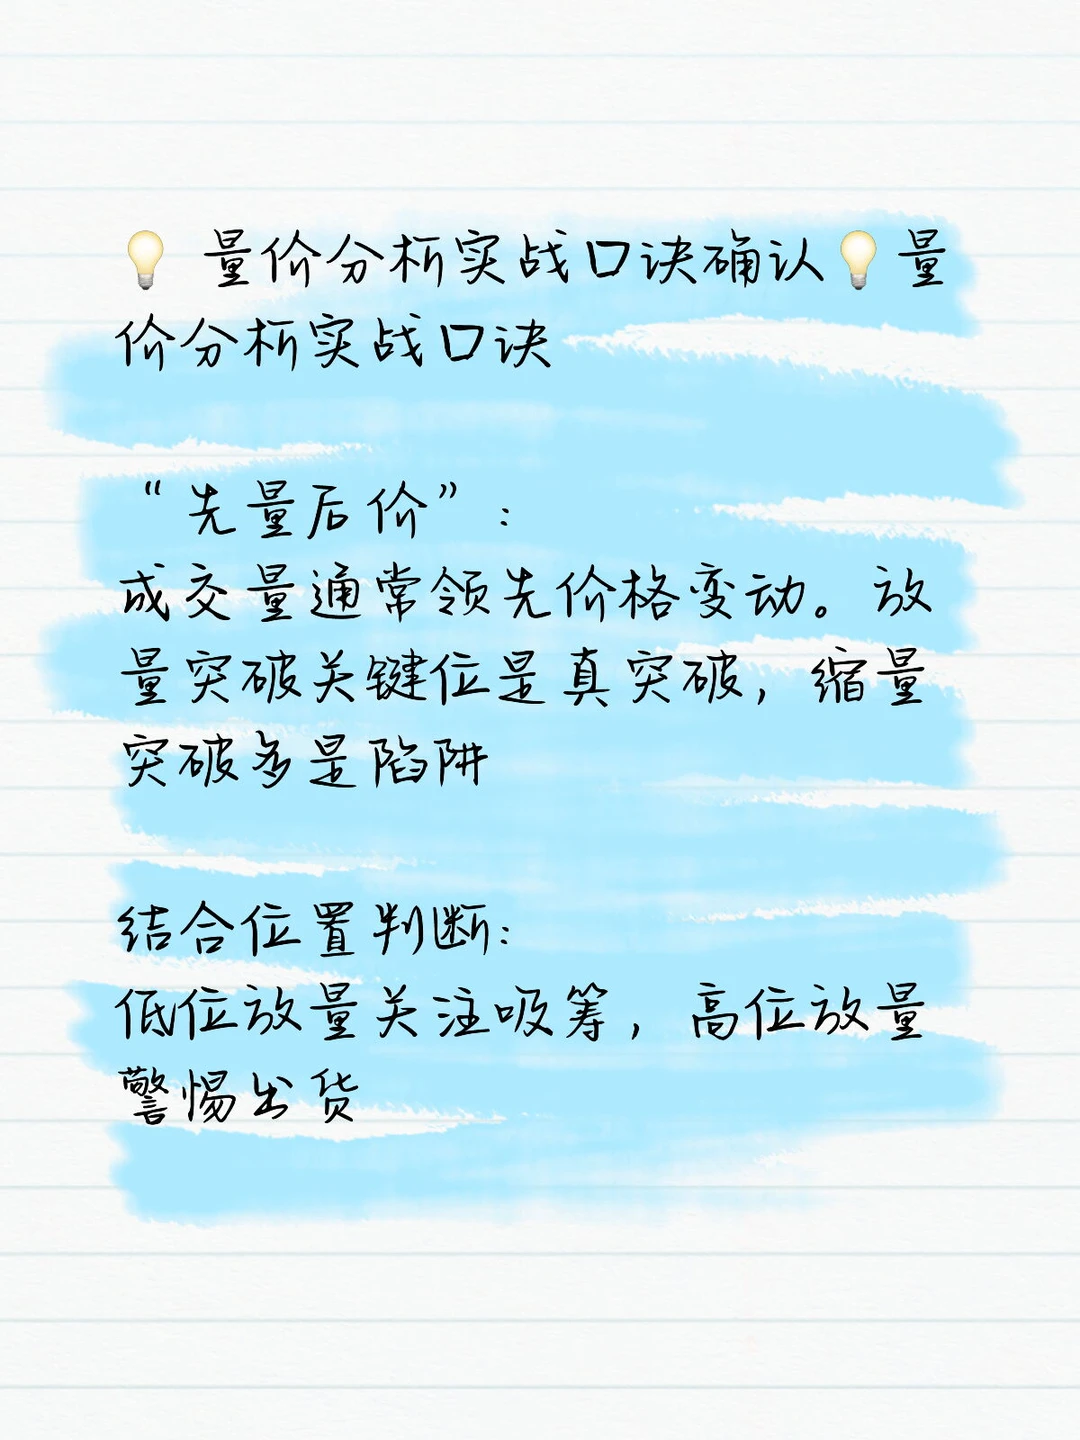 💡 量价分析实战口诀确认💡量
价分析实战口诀
“先量后价”:
成交量通常领先价格变动。放
量突破关键位是真突破,缩量
突破多是陷阱
结合位置判断:
低位放量关注吸筹,高位放量
警惕出货